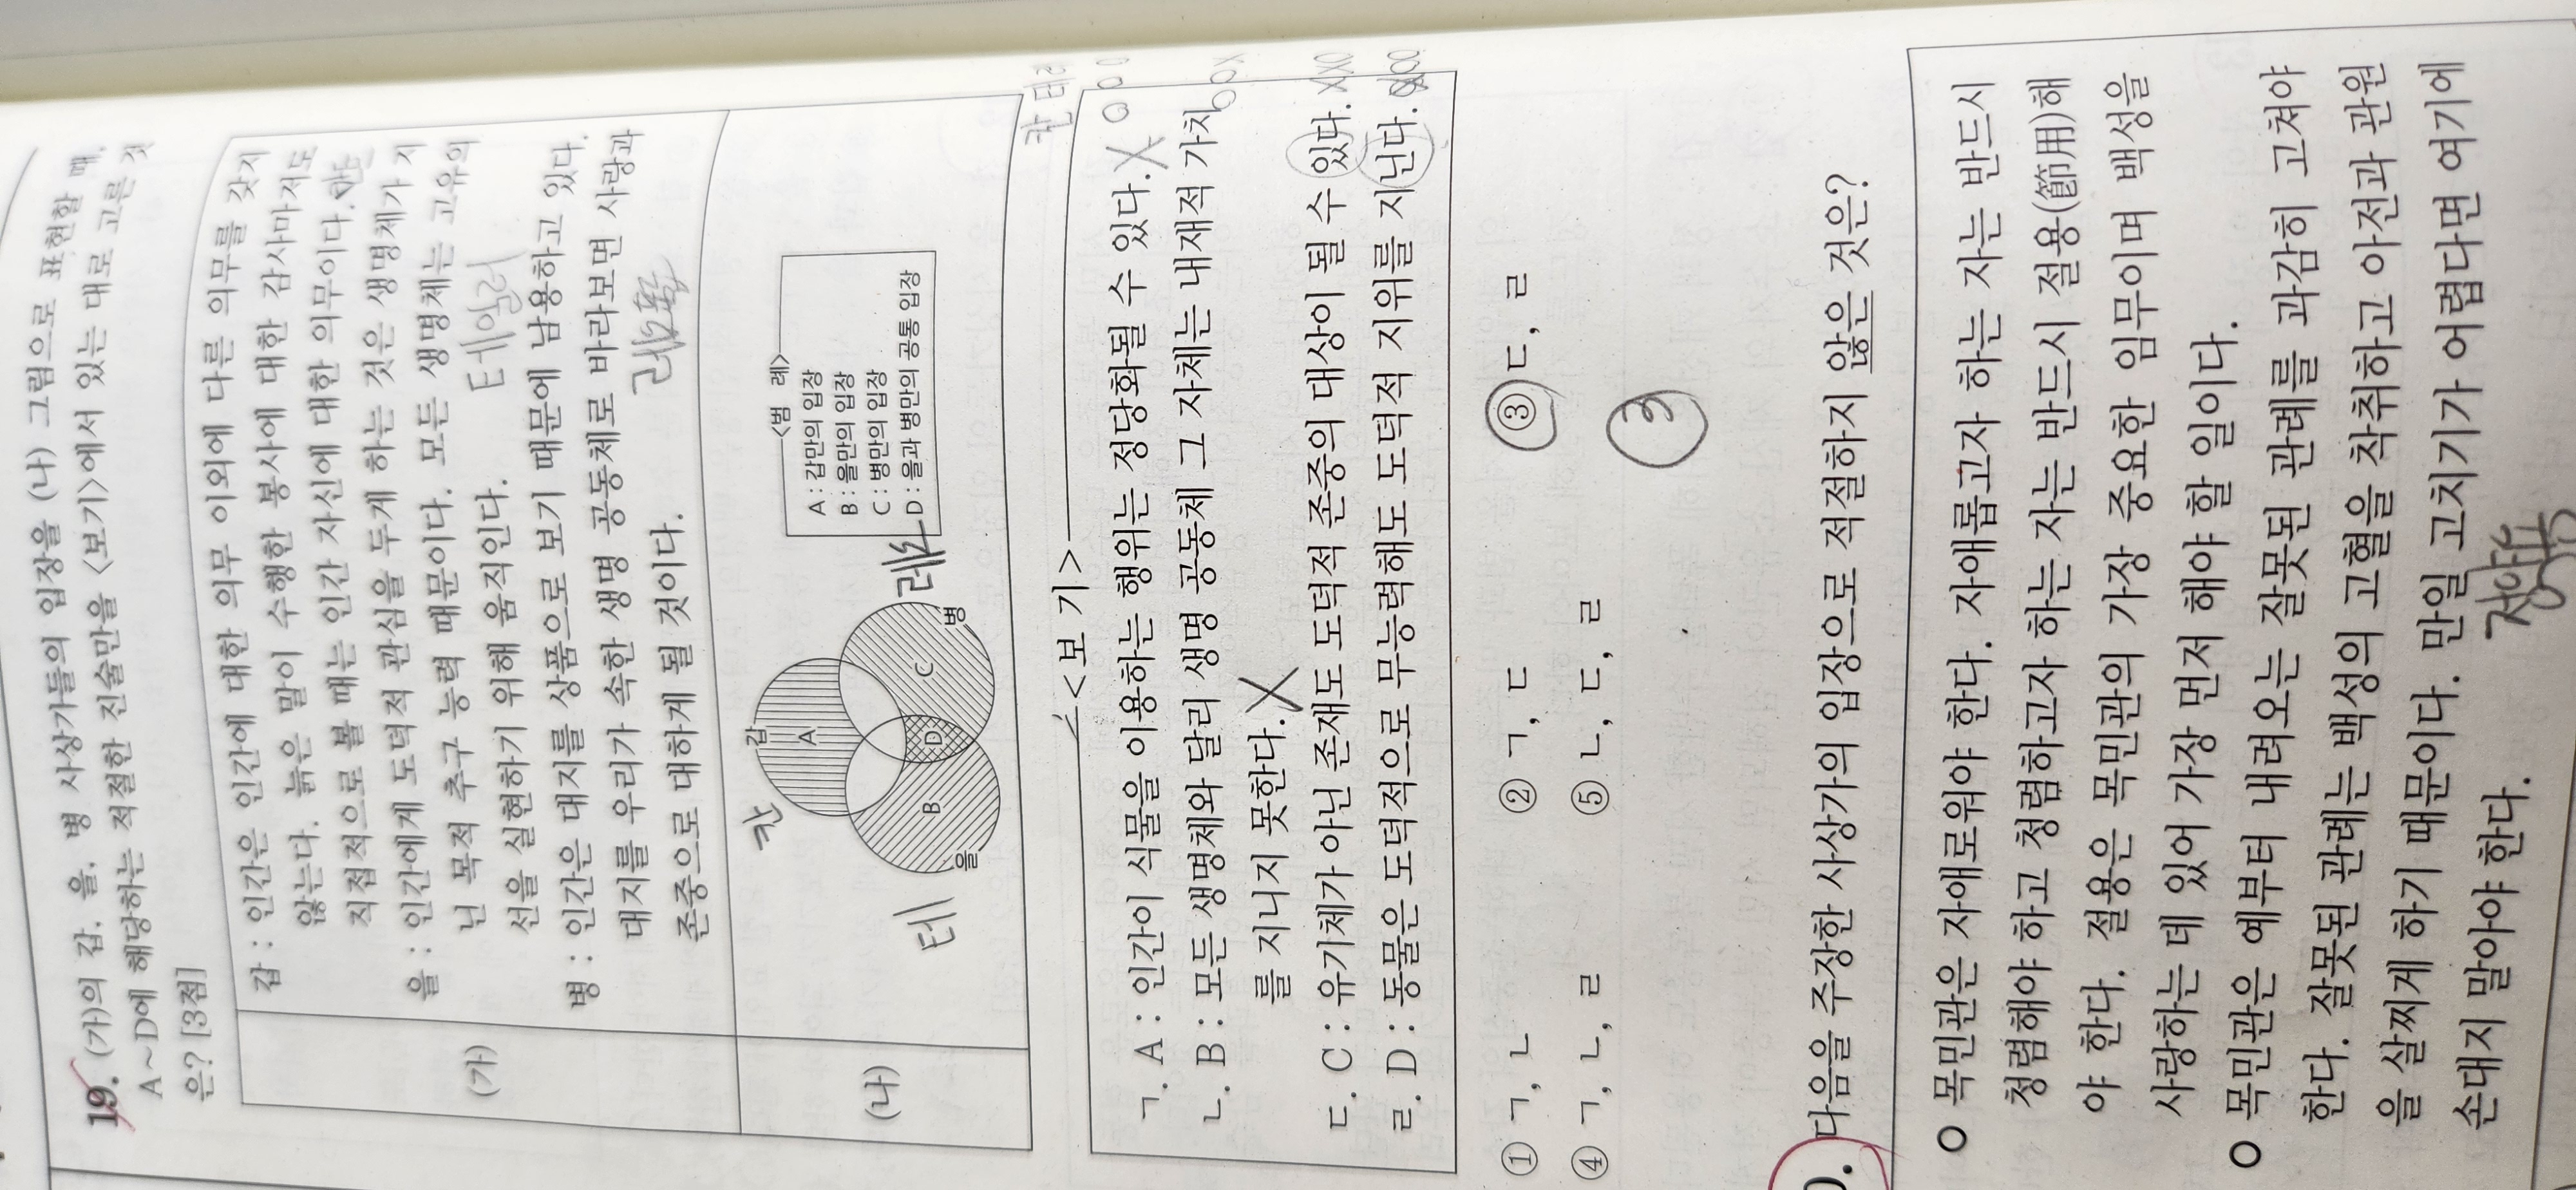 19. (가)의 갑, 을, 병 사상가들의 입장을 (나) 그림으로 표현할 때,
A~D에 해당하는 적절한 진술만을 <보기>에서 있는 대로 고른 것
은? [3점]
(가)
갑 : 인간은 인간에 대한 의무 이외에 다른 의무를 갖지
않는다. 늙은 말이 수행한 봉사에 대한 감사마저도
직접적으로 볼 때는 인간 자신에 대한 의무이다.
을 : 인간에게 도덕적 관심을 두게 하는 것은 생명체가 지
닌 목적 추구 능력 때문이다. 모든 생명체는 고유의
선을 실현하기 위해 움직인다.
테일러
병 : 인간은 대지를 상품으로 보기 때문에 남용하고 있다.
대지를 우리가 속한 생명 공동체로 바라보면 사랑과
존중으로 대하게 될 것이다.
레오폴
(나)
칸
갑
A
테
을
B
D
C
병
레오
<범 례>
A : 갑만의 입장
B : 을만의 입장
C : 병만의 입장
D : 을과 병만의 공통 입장
칸 테 레
<보 기>
ㄱ. A : 인간이 식물을 이용하는 행위는 정당화될 수 있다. X O O O
ㄴ. B : 모든 생명체와 달리 생명 공동체 그 자체는 내재적 가치
를 지니지 못한다. X
ㄷ. C : 유기체가 아닌 존재도 도덕적 존중의 대상이 될 수 있다. XXO
ㄹ. D : 동물은 도덕적으로 무능력해도 도덕적 지위를 지닌다. XOO
① ㄱ, ㄴ ② ㄱ, ㄷ ③ ㄷ, ㄹ
④ ㄱ, ㄴ, ㄹ ⑤ ㄴ, ㄷ, ㄹ
3
0. 다음을 주장한 사상가의 입장으로 적절하지 않은 것은?
o 목민관은 자애로워야 한다. 자애롭고자 하는 자는 반드시
청렴해야 하고 청렴하고자 하는 자는 반드시 절용(節用)해
야 한다. 절용은 목민관의 가장 중요한 임무이며 백성을
사랑하는 데 있어 가장 먼저 해야 할 일이다.
o 목민관은 예부터 내려오는 잘못된 관례를 과감히 고쳐야
한다. 잘못된 관례는 백성의 고혈을 착취하고 아전과 관원
을 살찌게 하기 때문이다. 만일 고치기가 어렵다면 여기에
손대지 말아야 한다.
정약용